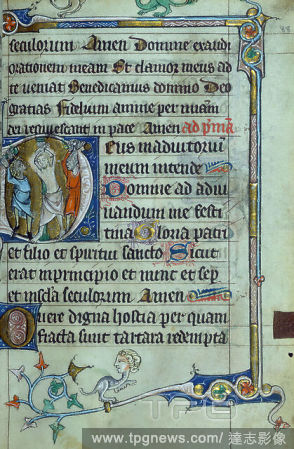 seculorum Amen Domine exaudi
orationem meam Et clamor meus ad
te veniat Benedicamus domino Deo
gratias Fidelium anime per miam dei
requiescant in pace Amen ad p'mā
Deus in adiutoriū
meum intende
Domine ad adiu
uandum me festi
na Gloria patri
et filio et spiritui sancto Sicut
erat in principio et nunc et semp
et in secula seculorum Amen
O vere digna hostia per quam
fracta sunt tartara redempta
www.tpgnews.com / 達志影像